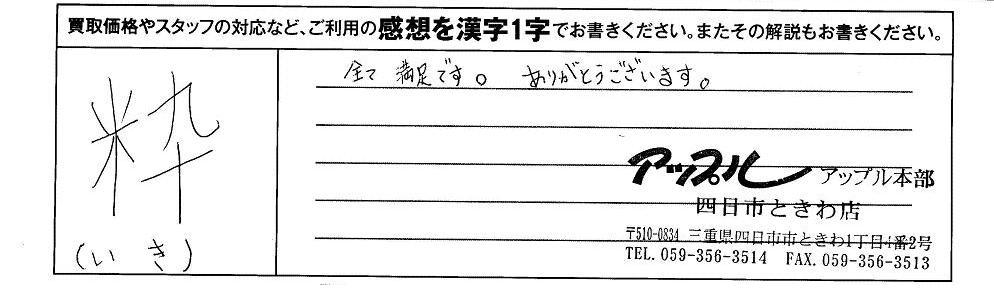 買取価格やスタッフの対応など、ご利用の感想を漢字1字でお書きください。またその解説もお書きください。
粋
(いき)
全て満足です。ありがとうございます。
アップル アップル本部
四日市ときわ店
〒510-0834 三重県四日市市ときわ1丁目4番2号
TEL. 059-356-3514 FAX. 059-356-3513